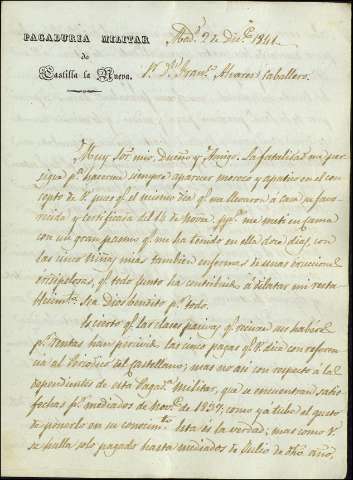 PAGADURIA MILITAR
de
Castilla la Nueva.
Mad. 9 de Dic.e 1841.
S.r D.n Fran.co Alvarez Caballero.
Muy Sor mio, Dueño y Amigo. La fatalidad me per-
sigue p.a hacerme siempre aparecer moroso y apatico en el con-
cepto de V. pues q.e el mismo dia q.e me llevaron á casa su favo-
recida y certificada del 14 de Novre. pp.o me metí en cama
con un gran q.e me ha tenido en ella doce dias, con
las cinco Niñas mias tambien enfermas de unas erupciones
erisipelosas, q.e todo junto ha contribuido á dilatar mi resta-
blecim.to Sea Dios bendito p.r todo.
Es cierto q.e las clases pasivas q.e reciven sus haberes
p.r rentas han percivido las cinco pagas q.e V. dice con referen-
cia al Periodico del Castellano; mas no asi con respecto á los
dependientes de esta Pagad.a Militar, que se encuentran satis-
fechas p.r mediados de Nov.e de 1837, como ya tube el gusto
de ponerlo en su conocim.to Esta es la verdad; mas como V.
se halla solo pagado hasta mediados de Julio de dho año,